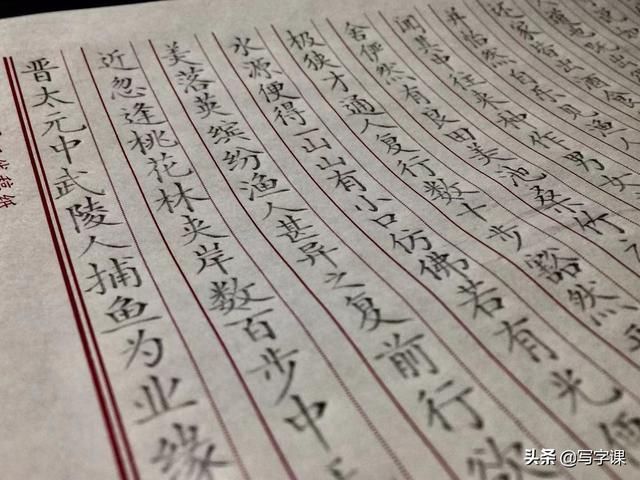 晋太元中武陵人捕鱼为业缘
近忽逢桃花林夹岸数百步中
美落英缤纷渔人甚异之复前行欲
水源便得一山山有小口仿佛若有光便
极狭才通人复行数十步豁然
舍俨然有良田美池桑竹之
闻其中往来种作男女
并怡然自乐见渔人
家皆出酒食
道也既出
头条 @写字课